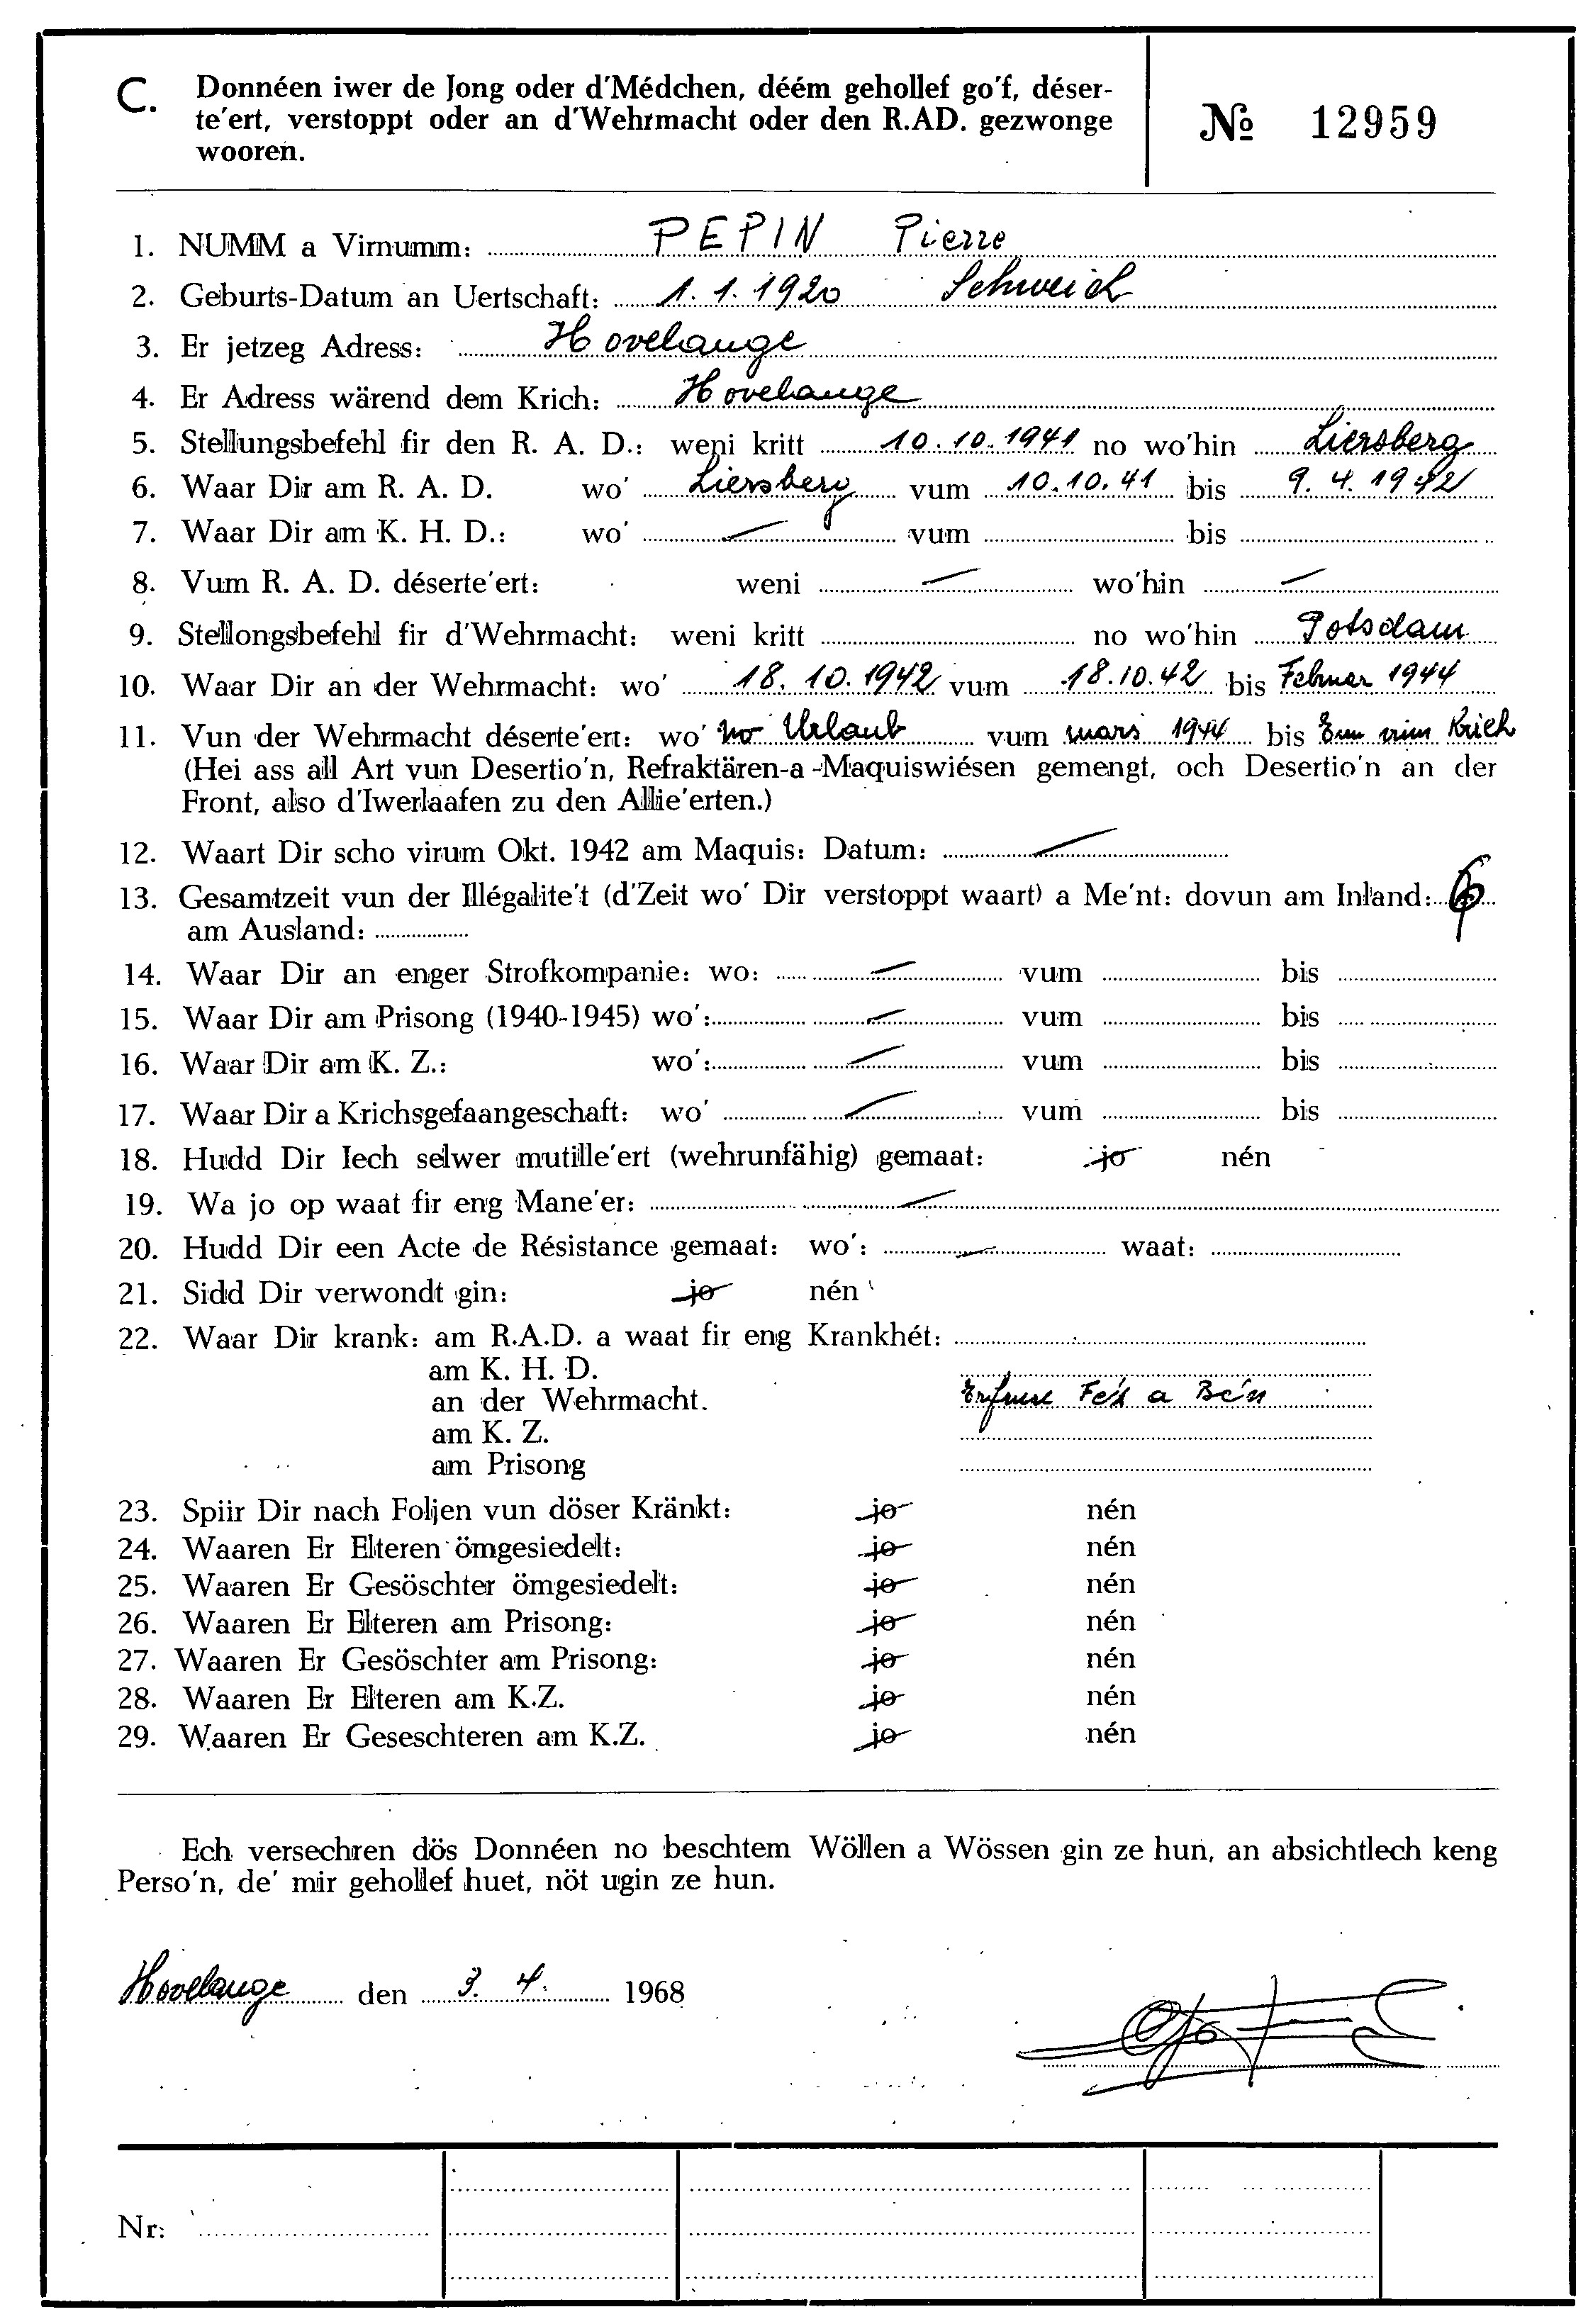 C. Donnéen iwer de Jong oder d'Médchen, déém gehollef go'f, déser-
te'ert, verstoppt oder an d'Wehrmacht oder den R.AD. gezwonge
wooren.
№ 12959
1. NUMM a Virnumm: PEPIN Pierre
2. Geburts-Datum an Uertschaft: 1. 1. 1920 Schweich
3. Er jetzeg Adress: Hovelange
4. Er Adress wärend dem Krich: Hovelange
5. Stellungsbefehl fir den R. A. D.: weni kritt 10.10.1941 no wo'hin Liersberg
6. Waar Dir am R. A. D. wo' Liersberg vum 10.10.41 bis 9. 4. 1942
7. Waar Dir am K. H. D.: wo' — vum bis
8. Vum R. A. D. déserte'ert: weni — wo'hin —
9. Stellongsbefehl fir d'Wehrmacht: weni kritt no wo'hin Potsdam
10. Waar Dir an der Wehrmacht: wo' 18. 10. 1942 vum 18.10.42 bis Februar 1944
11. Vun der Wehrmacht déserte'ert: wo' no Urlaub vum mars 1944 bis Enn vum Krich
(Hei ass all Art vun Desertio'n, Refraktären-a-Maquiswiésen gemengt, och Desertio'n an der
Front, also d'Iwerlaafen zu den Allie'erten.)
12. Waart Dir scho virum Okt. 1942 am Maquis: Datum: —
13. Gesamtzeit vun der Illégalite't (d'Zeit wo' Dir verstoppt waart) a Me'nt: dovun am Inland:
am Ausland:
14. Waar Dir an enger Strofkompanie: wo: — vum bis
15. Waar Dir am Prisong (1940-1945) wo': — vum bis
16. Waar Dir am K. Z.: wo': — vum bis
17. Waar Dir a Krichsgefaangeschaft: wo' — vum bis
18. Hudd Dir Iech selwer mutille'ert (wehrunfähig) gemaat: jo nén
19. Wa jo op waat fir eng Mane'er: —
20. Hudd Dir een Acte de Résistance gemaat: wo': — waat:
21. Sidd Dir verwondt gin: jo nén
22. Waar Dir krank: am R.A.D. a waat fir eng Krankhét:
am K. H. D.
an der Wehrmacht. Erfruse Fe'ss a Be'n
am K. Z.
am Prisong
23. Spiir Dir nach Foljen vun döser Kränkt: jo nén
24. Waaren Er Elteren ömgesiedelt: jo nén
25. Waaren Er Gesöschter ömgesiedelt: jo nén
26. Waaren Er Elteren am Prisong: jo nén
27. Waaren Er Gesöschter am Prisong: jo nén
28. Waaren Er Elteren am K.Z. jo nén
29. Waaren Er Geseschteren am K.Z. jo nén
Ech versechren dös Donnéen no beschtem Wöllen a Wössen gin ze hun, an absichtlech keng
Perso'n, de' mir gehollef huet, nöt ugin ze hun.
Hovelange den 3. 4. 1968
Nr: